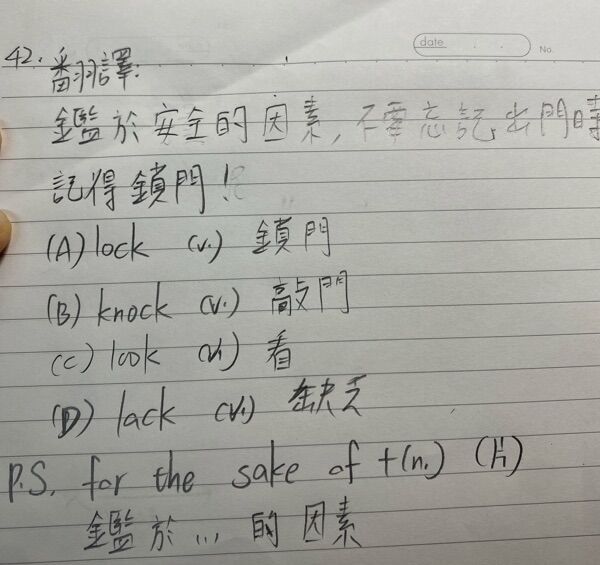 date
No.
42. 翻譯:
鑑於安全的因素,不要忘記出門時
記得鎖門!
(A) lock (v.) 鎖門
(B) knock (v.) 敲門
(C) look (v.) 看
(D) lack (v.) 缺乏
P.S. for the sake of +(n.) (片)
鑑於...的因素